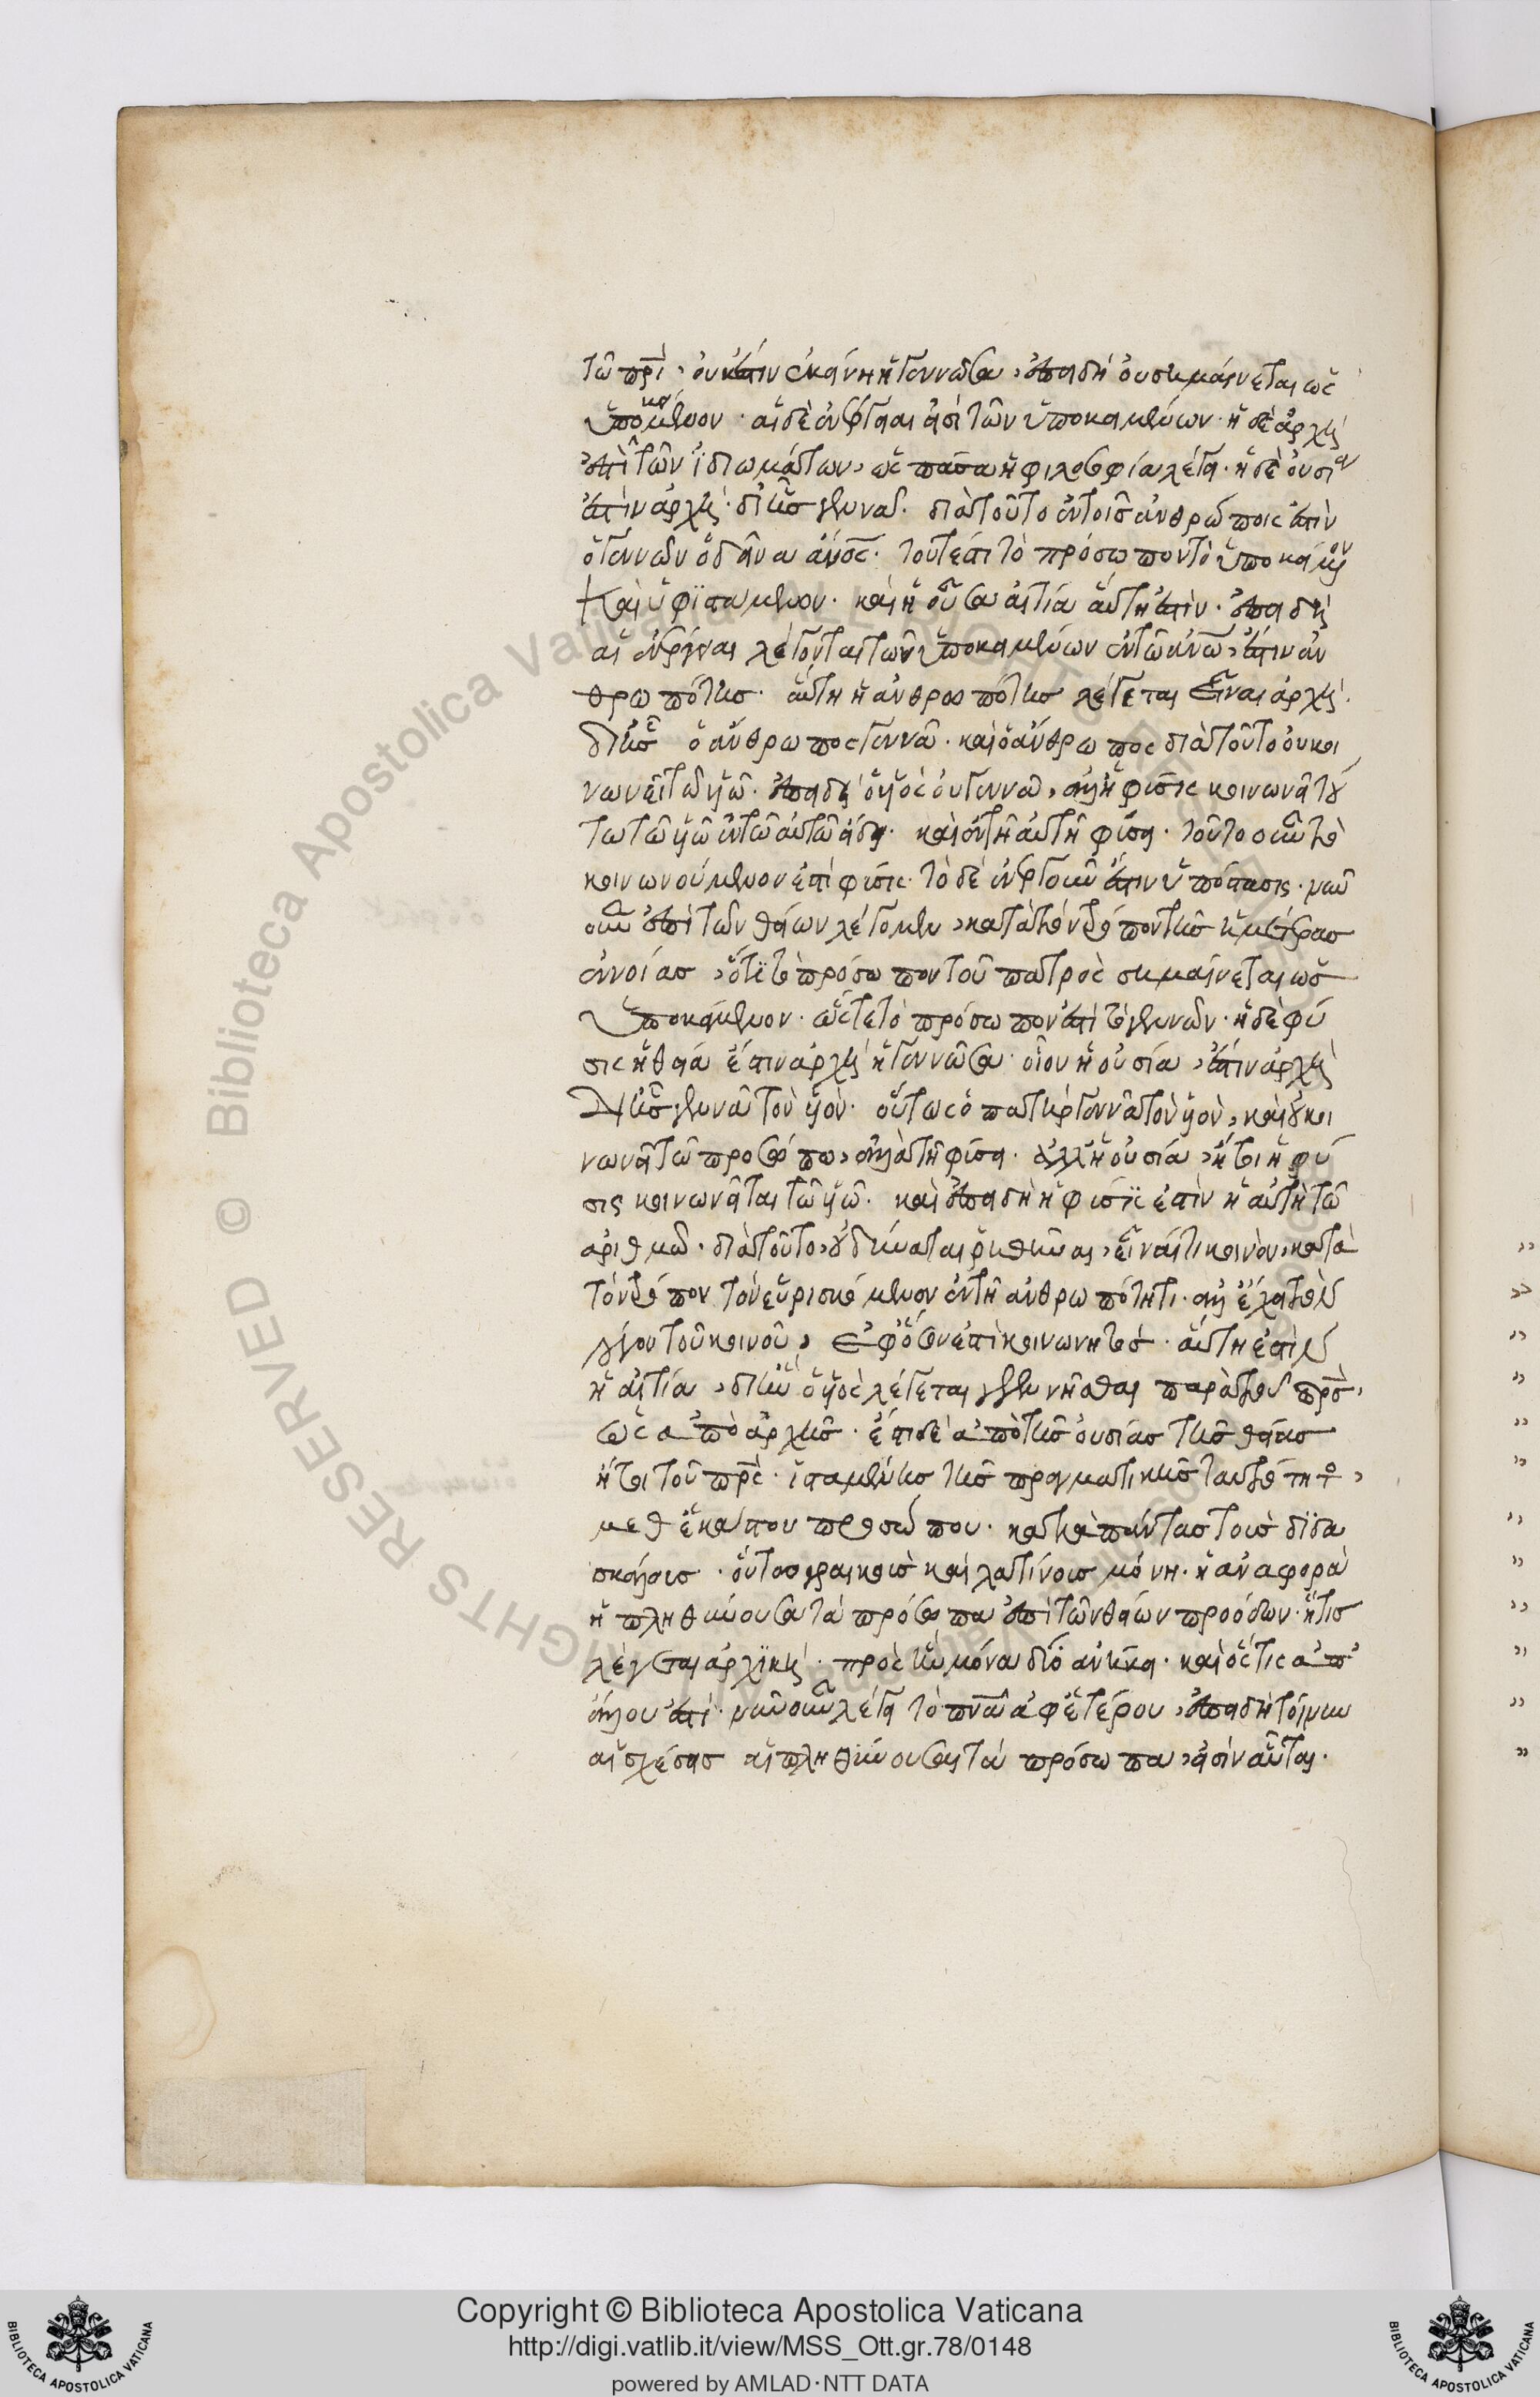 τῶ πρὶ· οὐκ ἔστιν ἐκείνη ἡ γεννῶσα, ἐπειδὴ οὐ σημαίνεται ὡς
ὑποκείμενον· αἱ δὲ ἐνέργειαι εἰσὶ τῶν ὑποκειμένων· ἡ δὲ ἀρχὴ
ἐπὶ τῶν ἰδιωμάτων, ὡς πᾶσα ἡ φιλοσοφία λέγει· ἡ δὲ οὐσία
ἐστὶν ἀρχὴ· δι' ἧς γεννᾶ. διὰ τοῦτο ἐν τοῖς ἀνθρώποις ἐστὶν
ὁ γεννῶν ὁ δεῖνα ἄνος· τουτέστι τὸ πρόσωπον τὸ ὑποκείμενον
καὶ ὑφϊστάμενον· καὶ ἡ οὖσα αἰτία αὕτη ἐστὶν· ἐπειδὴ
αἱ ἐνέργειαι λέγονται τῶν ὑποκειμένων ἐν τῶ ἐστιν ἀν
θρωπότης· αὕτη ἡ ἀνθρωπότης λέγεται εἶναι ἀρχὴ·
δι' ἧς ὁ ἄνθρωπος γεννᾶ· καὶ ὁ ἄνθρωπος διὰ τοῦτο οὐ κοι
νωνεῖ τῶ υἱῶ· ἐπειδὴ ὁ υἱὸς οὐ γεννᾶ, ἀλλ' ἡ φύσις κοινωνεῖ
τῶ υἱῶ ἐν τῶ αὐτῶ εἴδει· καὶ ἐν τῆ αὐτῆ φύσει· τοῦτο οὖν τὸ
κοινωνούμενον ἐστὶ φύσις· τὸ δὲ ἐνεργοῦν ἔστιν ὑπόστασις· νῦν
οὖν ἐπὶ τῶν θείων λέγομεν, κατὰ τὸν τρόπον τῆς ἡμετέρας
ἐννοίας, ὅτϊ τὸ πρόσωπον τοῦ πατρὸς σημαίνεται ὡς
ὑποκείμενον· ὥστε τὸ πρόσωπον ἐστὶ τὸ γεννῶν· ἡ δὲ φύ
σις ἡ θεία ἐστιν ἀρχὴ ἡ γεννῶσα· οἷον ἡ οὐσία, ἐστιν ἀρχὴ
δι' ἧς γεννᾶ τὸν υἱὸν· οὕτως ὁ πατὴρ γεννᾶ τὸν υἱὸν, καὶ οὐ κοι
νωνεῖ τῶ προσώπω, ἀλλὰ τῆ φύσει· ἀλλ' ἡ οὐσία, ἤτοι ἡ φύ
σις κοινωνεῖται τῶ υἱῶ· καὶ ἐπειδὴ ἡ φύσϊς ἐστὶν ἡ αὐτὴ τῶ
ἀριθμῶ· διὰ τοῦτο, οὐ δύναται ῥηθῆναι, εἶναί τι κοινὸν, κατὰ
τὸν τρόπον τὸν εὑρισκόμενον ἐν τῆ ἀνθρωπότητι· ἀλλ'
τοῦ κοινοῦ, ἐφ' ὅσον ἐστὶ κοινωνητὸν· αὕτη ἐστὶν
ἡ αἰτία, δι' ἣν ὁ υἱὸς λέγεται γεγεννῆσθαι παρὰ τοῦ πρς,
ὡς ἀπὸ ἀρχῆς· ἔστι δὲ ἀπὸ τῆς οὐσίας τῆς θείας
ἤτοι τοῦ πρς· ἱσταμένης τῆς πραγματικῆς ταυτότητος,
μεθ' ἑκάστου προσώπου· κατὰ πάντας τοὺς διδα
σκάλους· οὕτως γραικοὺς καὶ λατίνους μόνη· ἡ ἀναφορὰ
ἡ πληθύνουσα τὰ πρόσωπα ἐπὶ τῶν θείων προόδων· ἥτις
λέγεται ἀρχϊκὴ· πρὸς ἣν μόνα δύο ἀνήκει· καὶ ὅστις ἀπ'
ἄλλου ἐστί· νῦν οὖν λέγει τὸ πνᾶ ἀφ' ἑτέρου, ἐπειδὴ τοίνυν
αἱ σχέσεις αἱ πληθύνουσαι τὰ πρόσωπα, εἰσὶν αὗται·
Copyright © Biblioteca Apostolica Vaticana
http://digi.vatlib.it/view/MSS_Ott.gr.78/0148
powered by AMLAD·NTT DATA